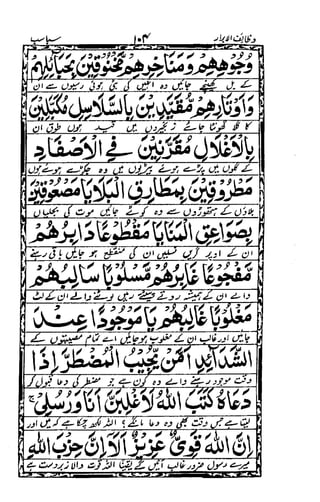 وظائف الابرار ۱۰۴ سباسب
وُجُوْهِهِمْ وَمَنَاخِرِهِمْ مَخْنُوْقِيْنَ بِحَبَائِلِهِمْ
کے بل کھینچے جائیں وہ انہیں کی بٹی ہوئی رسیوں سے ان
وَاَوْتَارِهِمْ مُقَيَّدِيْنَ بِالسَّلَاسِلِ مُكَبَّلِيْنَ
کا گلا گھونٹا جائے زنجیروں میں قید ہوں طوق ان
بِالْاَغْلَالِ مُقَرَّنِيْنَ فِي الْاَصْفَادِ
کے گلوں میں پڑے ہوئے بیڑیوں میں وہ جکڑے ہوئے ہوں
مَطْرُوْقِيْنَ بِمَطَارِقِ الْبَلَايَا مَصْعُوْقِيْنَ
بلاؤں کے ہتھوڑوں سے وہ کوٹے جائیں موت کی بجلیاں
بِصَوَاعِقِ الْمَنَايَا مَقْطُوْعًا دَابِرُهُمْ
ان کے اوپر گریں نسلیں ان کی منقطع ہو جائیں باقی رہنے
مَفْجُوْعًا غَابِرُهُمْ مَسْلُوْبًا سَالِبُهُمْ
والے ان کے ہمیشہ روتے پیٹتے رہیں لوٹنے والے ان کے لٹ
مَغْلُوْبًا غَالِبُهُمْ يَا مَوْجُوْدًا عِنْدَ
جائیں اور غالب ان کے مغلوب ہو جائیں اے تمام مصیبتوں کے
الشَّدَائِدِ اَمَّنْ يُجِيْبُ الْمُضْطَرَّ اِذَا
وقت موجود رہنے والے وہ کون ہے جو مضطر کی دعا قبول کر
دَعَاهُ كَتَبَ اللهُ لَاَغْلِبَنَّ اَنَا وَرُسُلِيْ
لیتا ہے جس وقت بھی وہ دعا مانگے اللہ لکھ چکا ہے کہ میں اور
اِنَّ اللهَ قَوِيٌّ عَزِيْزٌ اَلَا اِنَّ حِزْبَ اللهِ
میرے رسول ضرور غالب آئیں گے یقیناً اللہ قوت والا زبردست ہے